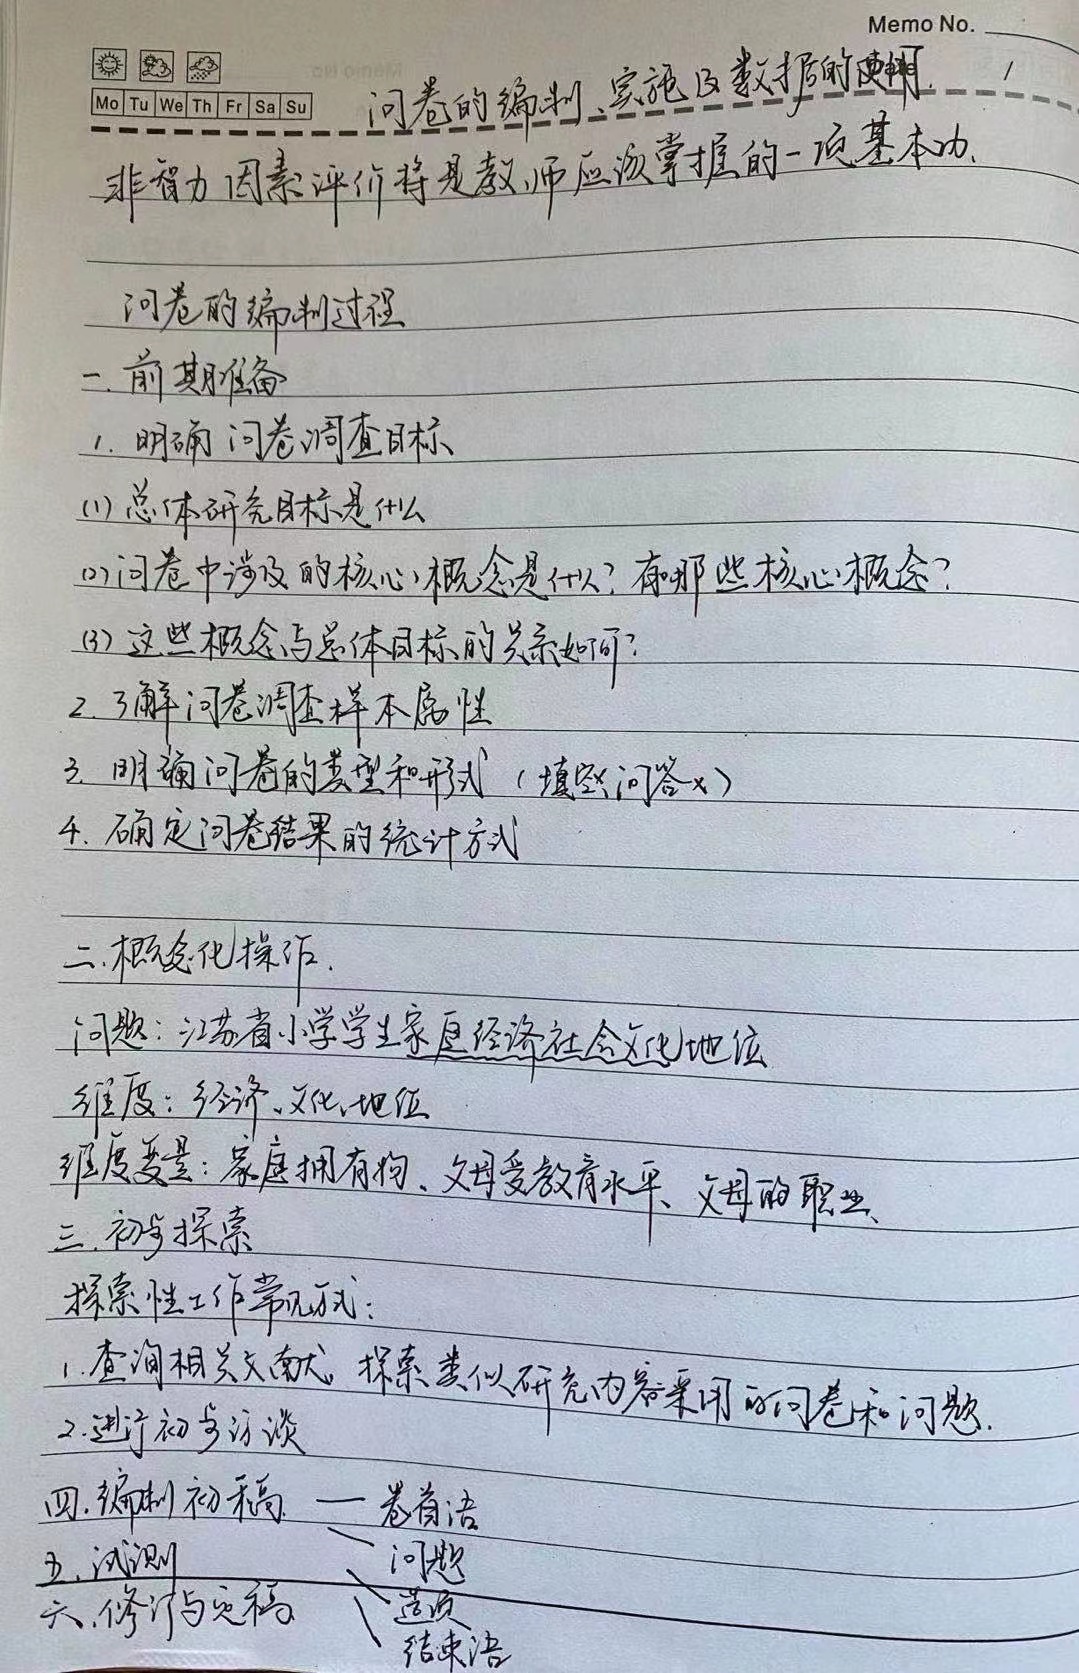 Memo No.
Mo Tu We Th Fr Sa Su
问卷的编制、实施及数据的使用. 1
非智力因素评价将是教师应该掌握的一项基本功.
问卷的编制过程
一.前期准备
1.明确问卷调查目标
(1)总体研究目标是什么
(2)问卷中涉及的核心概念是什么?有哪些核心概念?
(3)这些概念与总体目标的关系如何?
2.了解问卷调查样本属性
3.明确问卷的类型和形式(填空、问答×)
4.确定问卷结果的统计方式
二.概念化操作.
问题:江苏省小学学生家庭经济社会文化地位
维度:经济、文化、地位
维度变量:家庭拥有物、父母受教育水平、父母的职业、
三.初步探索
探索性工作常见方式:
1.查询相关文献,探索类似研究内容采用的问卷和问题.
2.进行初步访谈
四.编制初稿 — 卷首语
五.试测 问题
六.修订与定稿 选项
结束语